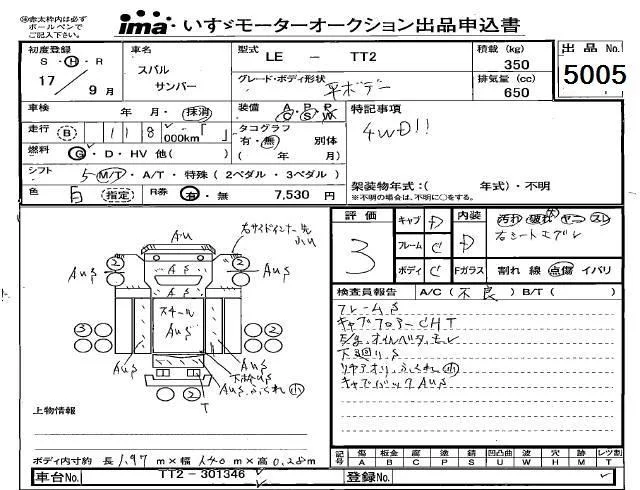 ※赤太枠内は必ず
ボールペンで
ご記入下さい。
ima いすゞモーターオークション出品申込書
出品 No.
5005
初度登録
S・H・R
17 / 9 月
車名
スバル
サンバー
型式 LE － TT2
グレード・ボディ形状
平ボデー
積載 (kg)
350
排気量 (cc)
650
車検 年・月・抹消
装備 A/C P/S P/W
特記事項
4WD!!
走行 B 118 000km「 」
タコグラフ
有・無 別体
( 年 月)
燃料 G・D・HV 他( )
シフト 5 M/T・A/T・特殊(2ペダル・3ペダル)
色 白 指定 R券 有・無 7,530 円
架装物年式:( 年式)・不明
※不明の場合は、不明に○をする。
評価
3
キャブ D
フレーム C
ボディ C
内装 D
Fガラス
汚れ 破れ ヤニ スレ
右シート
割れ 線 点傷 イバリ
検査員報告 A/C(不良) B/T( )
フレームS
キャブフロアーCHT
下回りS
キャブバックAUS
右サイドインナー
AU
AUS
AS
スチール
AUS
2
3
T
上物情報
ボディ内寸約 長1.97 m×幅1.40 m×高0.28 m
記号 傷 A 板金 B 腐 C 塗 P 錆 S 凹凸曲 U 波 W 穴 H 跡 M レツ割 T
車台No. TT2－301346
登録No.